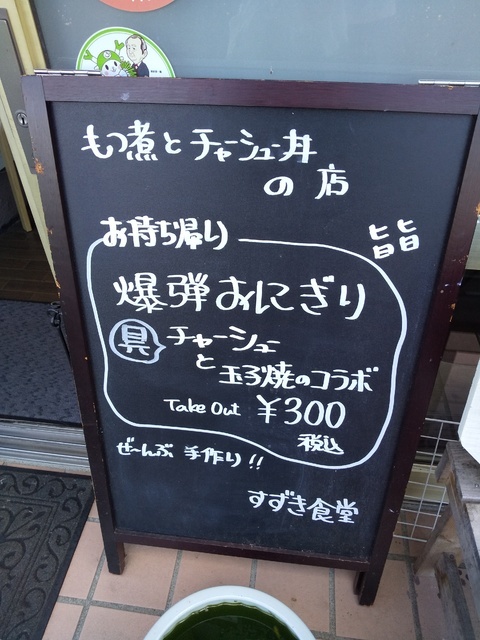 もつ煮とチャーシュー丼
の店
お持ち帰り
旨旨
爆弾おにぎり
具 チャーシュー
と
玉子焼のコラボ
Take Out ¥300
税込
ぜ〜んぶ 手作り!!
すずき食堂